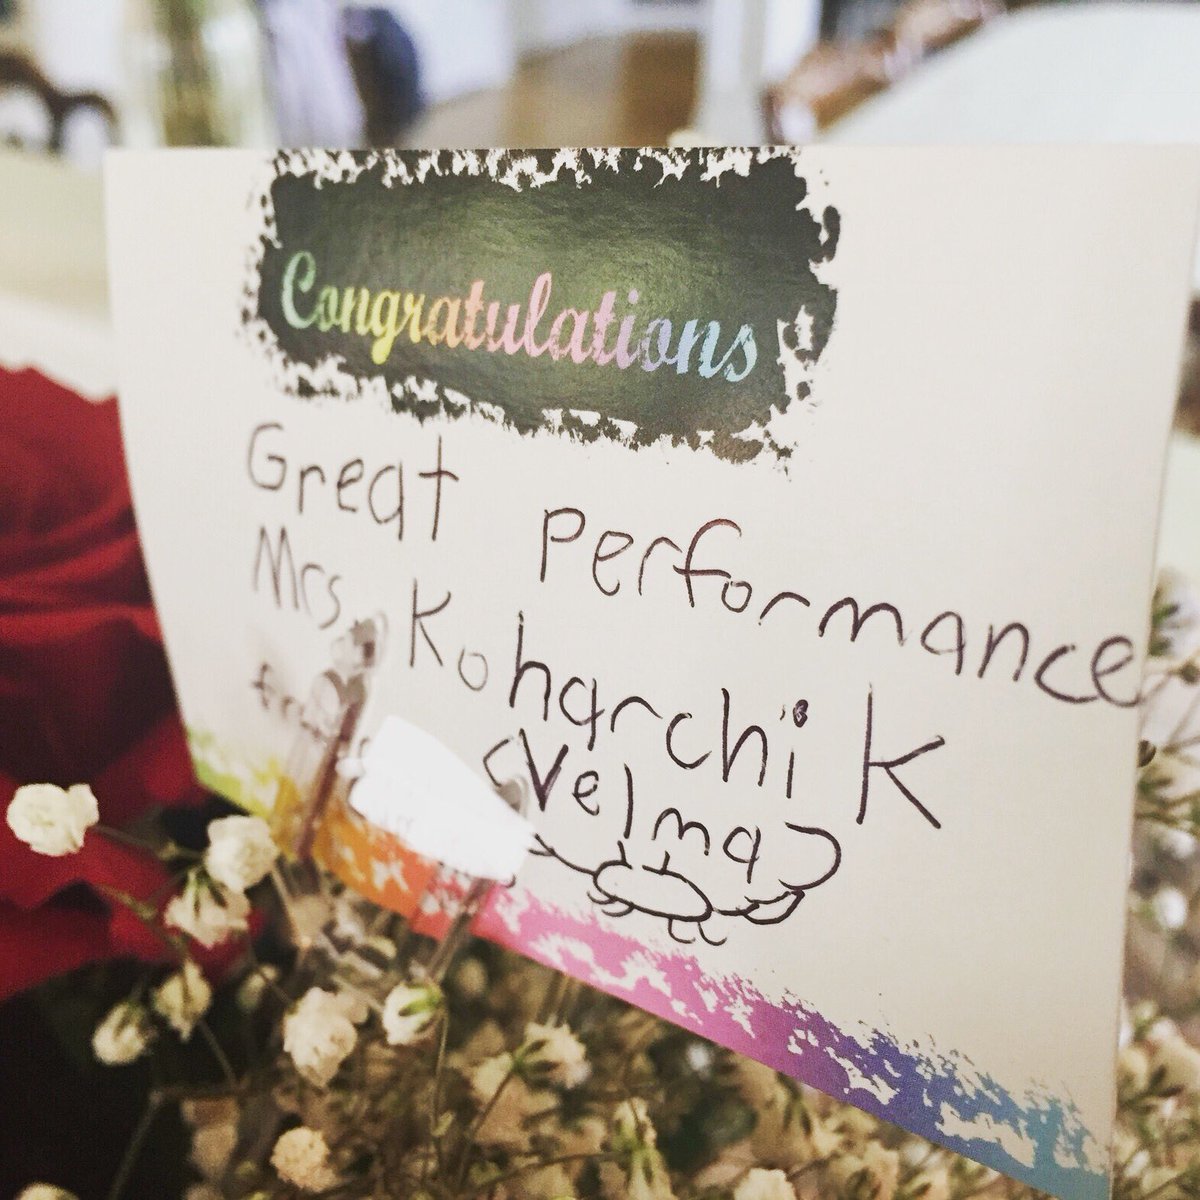 Congratulations
Great Performance
Mrs. Koharchik
(Velma)